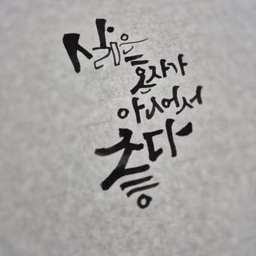 삶은
혼자가
아니어서
좋다